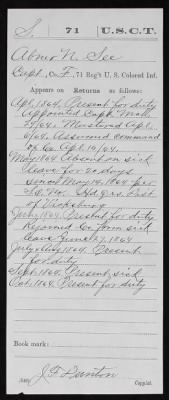 S. 71 U.S.C.T.
Abner N. See
Capt., Co. F, 71 Reg't U. S. Colored Inf.
Appears on Returns as follows:
Apl. 1864, Present for duty
Appointed Capt. Mch.
27/64. Mustered Apl.
6/64. Assumed command
of Co. Apl. 10/64.
May 1864 Absent on sick
leave for 20 days
since May 14, 1864 per
S.O. No. Hd. Qrs. Post
of Vicksburg
June 1864 Present for duty
Rejoined Co. from sick
leave June 27, 1864
July & Aug. 1864 Present
for duty
Sept. 1864, Present, sick
Oct. 1864, Present for duty
Book mark:
J. F. Denton
Copyist.